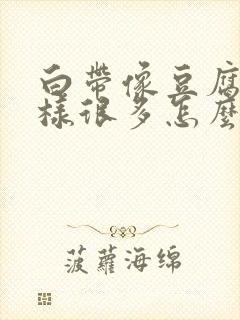 白帶像豆腐
樣很多怎麼
菠蘿海綿